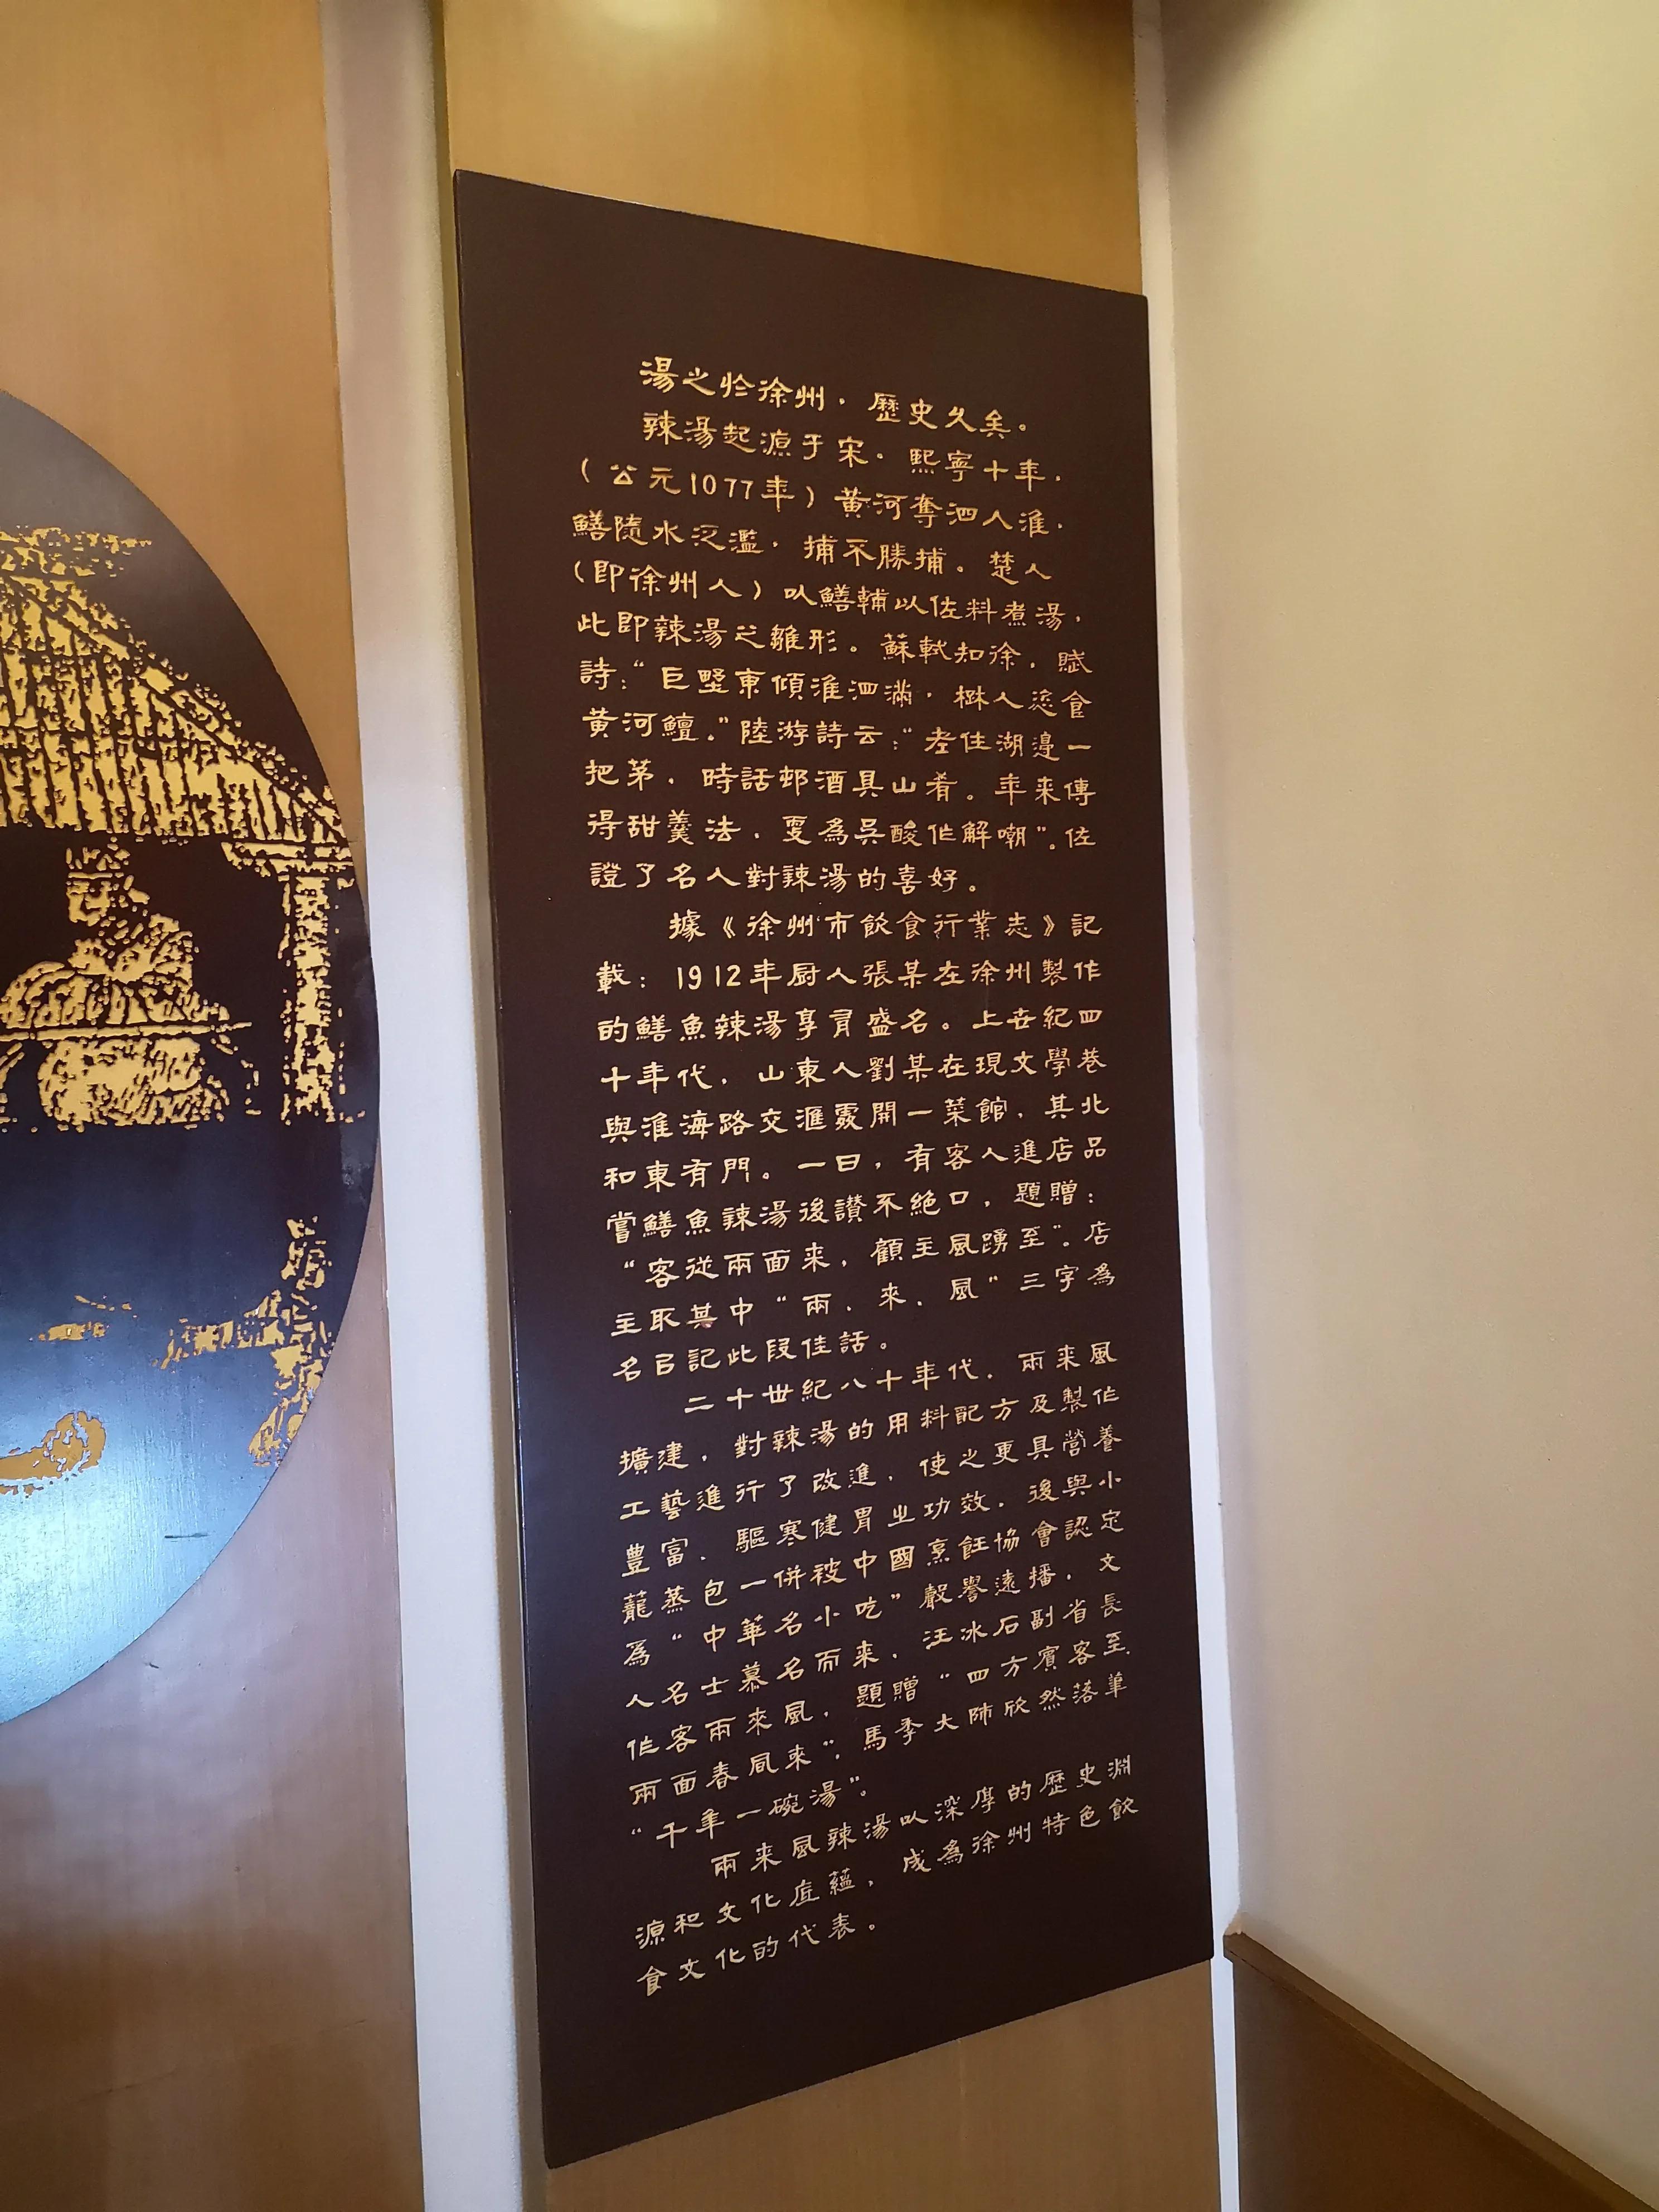 湯之於徐州，歷史久矣。
辣湯起源于宋。熙寧十年，
（公元1077年）黃河奪泗入淮，
鱔隨水泛濫，捕不勝捕。楚人
（即徐州人）以鱔輔以佐料煮湯，
此即辣湯之雛形。蘇軾知徐，賦
詩：“巨野東傾淮泗滿，楚人恣食
黃河鱣。”陸游詩云：“老住湖邊一
把茅，時話邨酒具山肴。年来傳
得甜羹法，更為吳酸作解嘲”。佐
證了名人對辣湯的喜好。
據《徐州市飲食行業志》記
載：1912年厨人張某在徐州製作
的鱔魚辣湯享有盛名。上世紀四
十年代，山東人劉某在現文學巷
與淮海路交滙處開一菜館，其北
和東有門。一日，有客人進店品
嘗鱔魚辣湯後讚不絕口，題贈：
“客從兩面来，顧主風踴至”。店
主取其中“兩、來、風”三字為
名以記此段佳話。
二十世紀八十年代，兩来風
擴建，對辣湯的用料配方及製作
工藝進行了改進，使之更具營養
豐富、驅寒健胃之功效，後與小
蘢蒸包一併被中國烹飪協會認定
為“中華名小吃”聲譽遠播，文
人名士慕名而来，汪冰石副省長
作客兩來風，題贈“四方賓客至，
兩面春風來”；馬季大師欣然落筆
“千年一碗湯”。
兩来風辣湯以深厚的歷史淵
源和文化底蘊，成為徐州特色飲
食文化的代表。